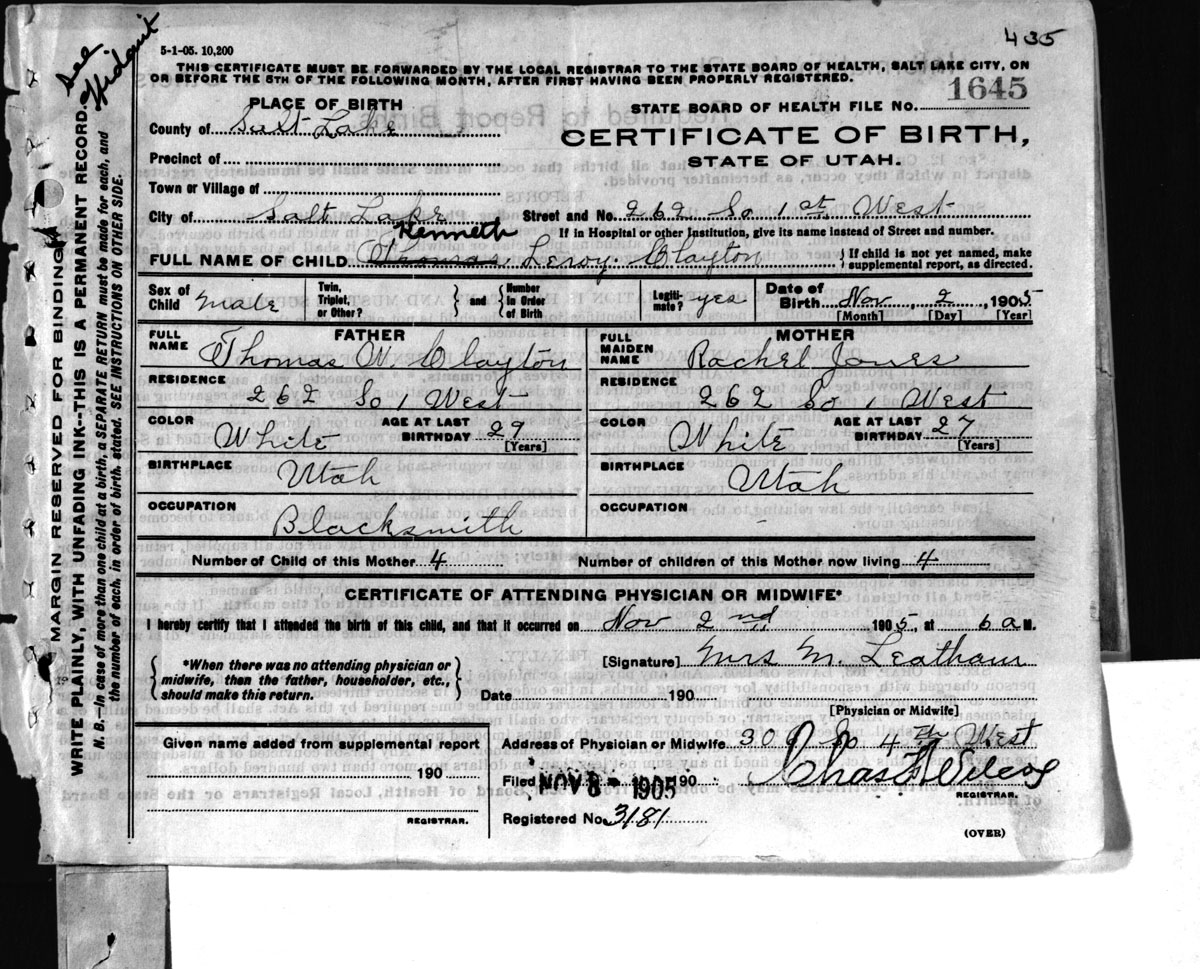 435
See Affidavit
5-1-05. 10,200
THIS CERTIFICATE MUST BE FORWARDED BY THE LOCAL REGISTRAR TO THE STATE BOARD OF HEALTH, SALT LAKE CITY, ON
OR BEFORE THE 5TH OF THE FOLLOWING MONTH, AFTER FIRST HAVING BEEN PROPERLY REGISTERED.
PLACE OF BIRTH
STATE BOARD OF HEALTH FILE NO. 1645
County of Salt Lake
CERTIFICATE OF BIRTH,
STATE OF UTAH.
Precinct of
Town or Village of
City of Salt Lake Street and No. 262 So 1st West
If in Hospital or other Institution, give its name instead of Street and number.
Kenneth
FULL NAME OF CHILD Thomas Leroy Clayton { If child is not yet named, make supplemental report, as directed.
Sex of Child Male Twin, Triplet, or Other? } and { Number in Order of Birth Legitimate? yes Date of Birth Nov, 2, 1905
[Month] [Day] [Year]
FATHER MOTHER
FULL NAME Thomas W. Clayton FULL MAIDEN NAME Rachel Jones
RESIDENCE 262 So 1 West RESIDENCE 262 So 1 West
COLOR White AGE AT LAST BIRTHDAY 29 [Years] COLOR White AGE AT LAST BIRTHDAY 27 [Years]
BIRTHPLACE Utah BIRTHPLACE Utah
OCCUPATION Blacksmith OCCUPATION
Number of Child of this Mother 4 Number of children of this Mother now living 4
CERTIFICATE OF ATTENDING PHYSICIAN OR MIDWIFE*
I hereby certify that I attended the birth of this child, and that it occurred on Nov 2nd 1905, at 6 a M.
{ *When there was no attending physician or midwife, then the father, householder, etc., should make this return. }
[Signature] Mrs M. Leatham
Date 190
[Physician or Midwife]
Given name added from supplemental report
190
REGISTRAR.
Address of Physician or Midwife So 4th West
Filed NOV 8 - 1905 190 Chas Wilcox
REGISTRAR.
Registered No. 3181
(OVER)
MARGIN RESERVED FOR BINDING.
WRITE PLAINLY, WITH UNFADING INK--THIS IS A PERMANENT RECORD.
N. B.--In case of more than one child at a birth, a SEPARATE RETURN must be made for each, and
the number of each, in order of birth, stated. SEE INSTRUCTIONS ON OTHER SIDE.